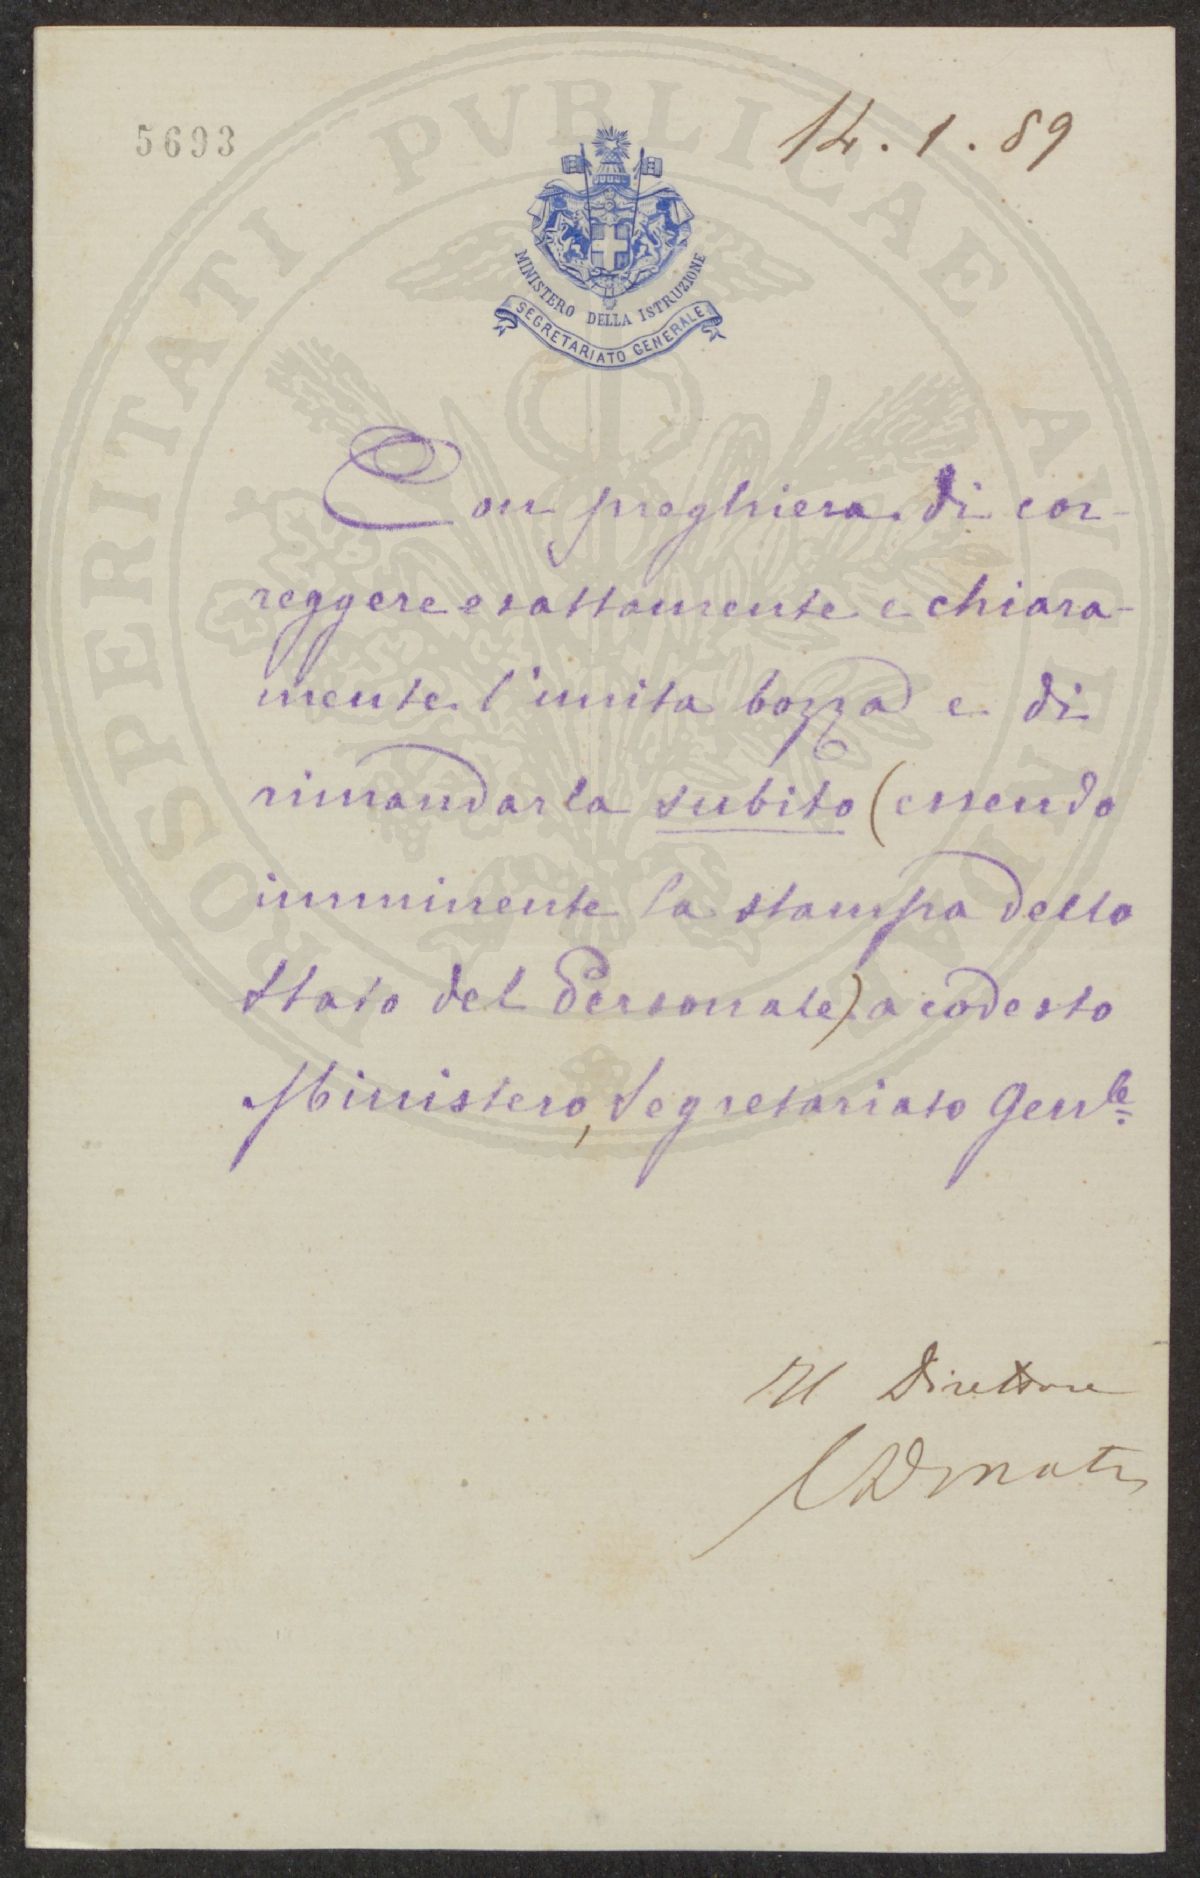 5693
14.1.89
MINISTERO DELLA ISTRUZIONE
SEGRETARIATO GENERALE
Con preghiera di cor-
reggere esattamente e chiara-
mente l'unita bozza e di
rimandarla subito (essendo
imminente la stampa dello
Stato del Personale) a codesto
Ministero, Segretariato Genle
Il Direttore
Donati
PROSPERITATI PVBLICAE AVGENDAE